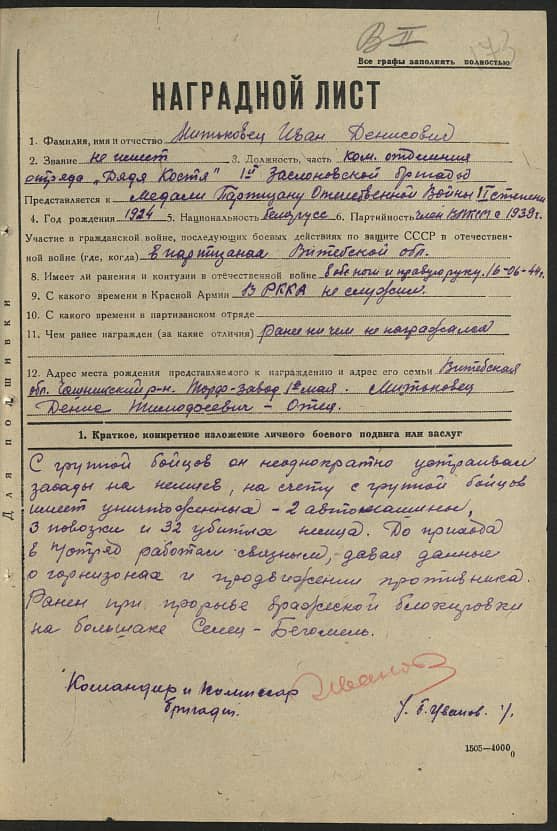 В II
173
Все графы заполнять полностью
НАГРАДНОЙ ЛИСТ
1. Фамилия, имя и отчество Митьковец Иван Денисович
2. Звание не имеет 3. Должность, часть ком. отделения
отряда „Дядя Костя" 1й Заслоновской бригады
Представляется к Медали Партизану Отечественной Войны II степени
4. Год рождения 1924 5. Национальность белорусс 6. Партийность член ВЛКСМ с 1939г.
Участие в гражданской войне, последующих боевых действиях по защите СССР в отечествен-
ной войне (где, когда) в партизанах Витебской обл.
8. Имеет ли ранения и контузии в отечественной войне в обе ноги и правую руку. 16-06-44г.
9. С какого времени в Красной Армии В РККА не служил.
10. С какого времени в партизанском отряде
11. Чем ранее награжден (за какие отличия) Ранее ни чем не награжался
12. Адрес места рождения представляемого к награждению и адрес его семьи Витебская
обл. Чашникский р-н. Торф-завод 1ое мая. Митьковец
Денис Тимофеевич - Отец.
Для подшивки
1. Краткое, конкретное изложение личного боевого подвига или заслуг
С группой бойцов он неоднократно устраивал
засады на немцев, на счету с группой бойцов
имеет уничтоженных - 2 автомашины,
3 повозки и 32 убитых немца. До прихода
в отряд работал связным, давая данные
о гарнизонах и продвижении противника.
Ранен при прорыве вражеской блокировки
на большаке Селец - Бегомль.
Командир и Комиссар
бригады.
Иванов
/ Иванов. /.
1505—4000